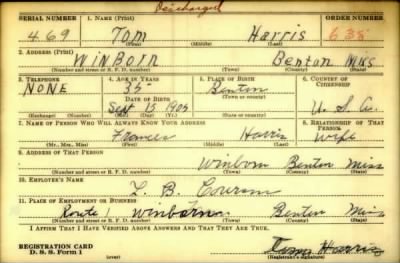 Discharged
SERIAL NUMBER 1. NAME (Print) ORDER NUMBER
469 Tom Harris 638
(First) (Middle) (Last)
2. ADDRESS (Print)
WINBORN Benton Miss
(Number and street or R. F. D. number) (Town) (County) (State)
3. TELEPHONE 4. AGE IN YEARS 5. PLACE OF BIRTH 6. COUNTRY OF CITIZENSHIP
NONE 35 Benton
DATE OF BIRTH (Town or county)
Sept 15 1905 U. S. A.
(Exchange) (Number) (Mo.) (Day) (Yr.) (State or country)
7. NAME OF PERSON WHO WILL ALWAYS KNOW YOUR ADDRESS 8. RELATIONSHIP OF THAT PERSON
Frances Harris Wife
(Mr., Mrs., Miss) (First) (Middle) (Last)
9. ADDRESS OF THAT PERSON
Winborn Benton Miss
(Number and street or R. F. D. number) (Town) (County) (State)
10. EMPLOYER'S NAME
L. B.
11. PLACE OF EMPLOYMENT OR BUSINESS
Route Winborn Benton Miss
(Number and street or R. F. D. number) (Town) (County) (State)
I AFFIRM THAT I HAVE VERIFIED ABOVE ANSWERS AND THAT THEY ARE TRUE.
REGISTRATION CARD
D. S. S. Form 1 (over) Tom Harris
(Registrant's signature)